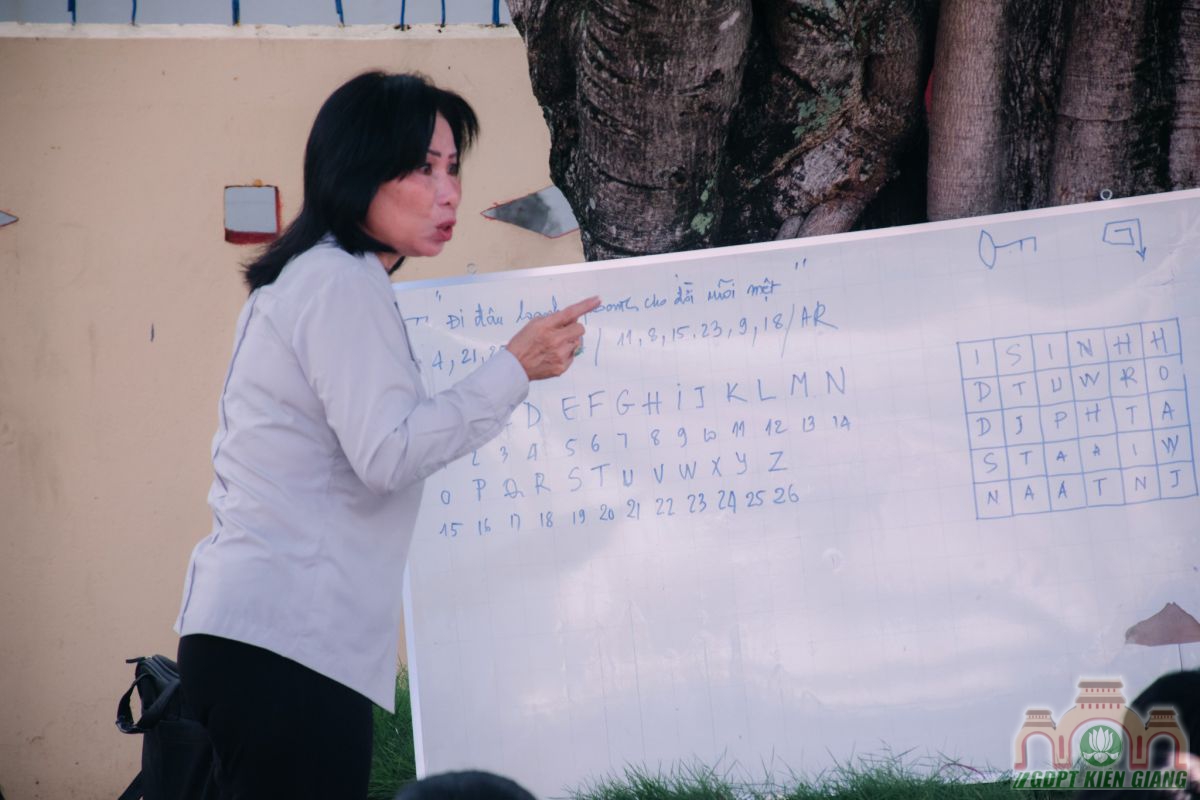 " Đi đâu cho đời mỏi mệt "
4, 21, / 11, 8, 15, 23, 9, 18 / AR
D E F G H i J K L M N
2 3 4 5 6 7 8 9 10 11 12 13 14
O P Q R S T U V W X Y Z
15 16 17 18 19 20 21 22 23 24 25 26
I S I N H H
D T U W R O
D J P H T A
S T A A I W
N A A T N J
//GĐPT KIEN GIANG